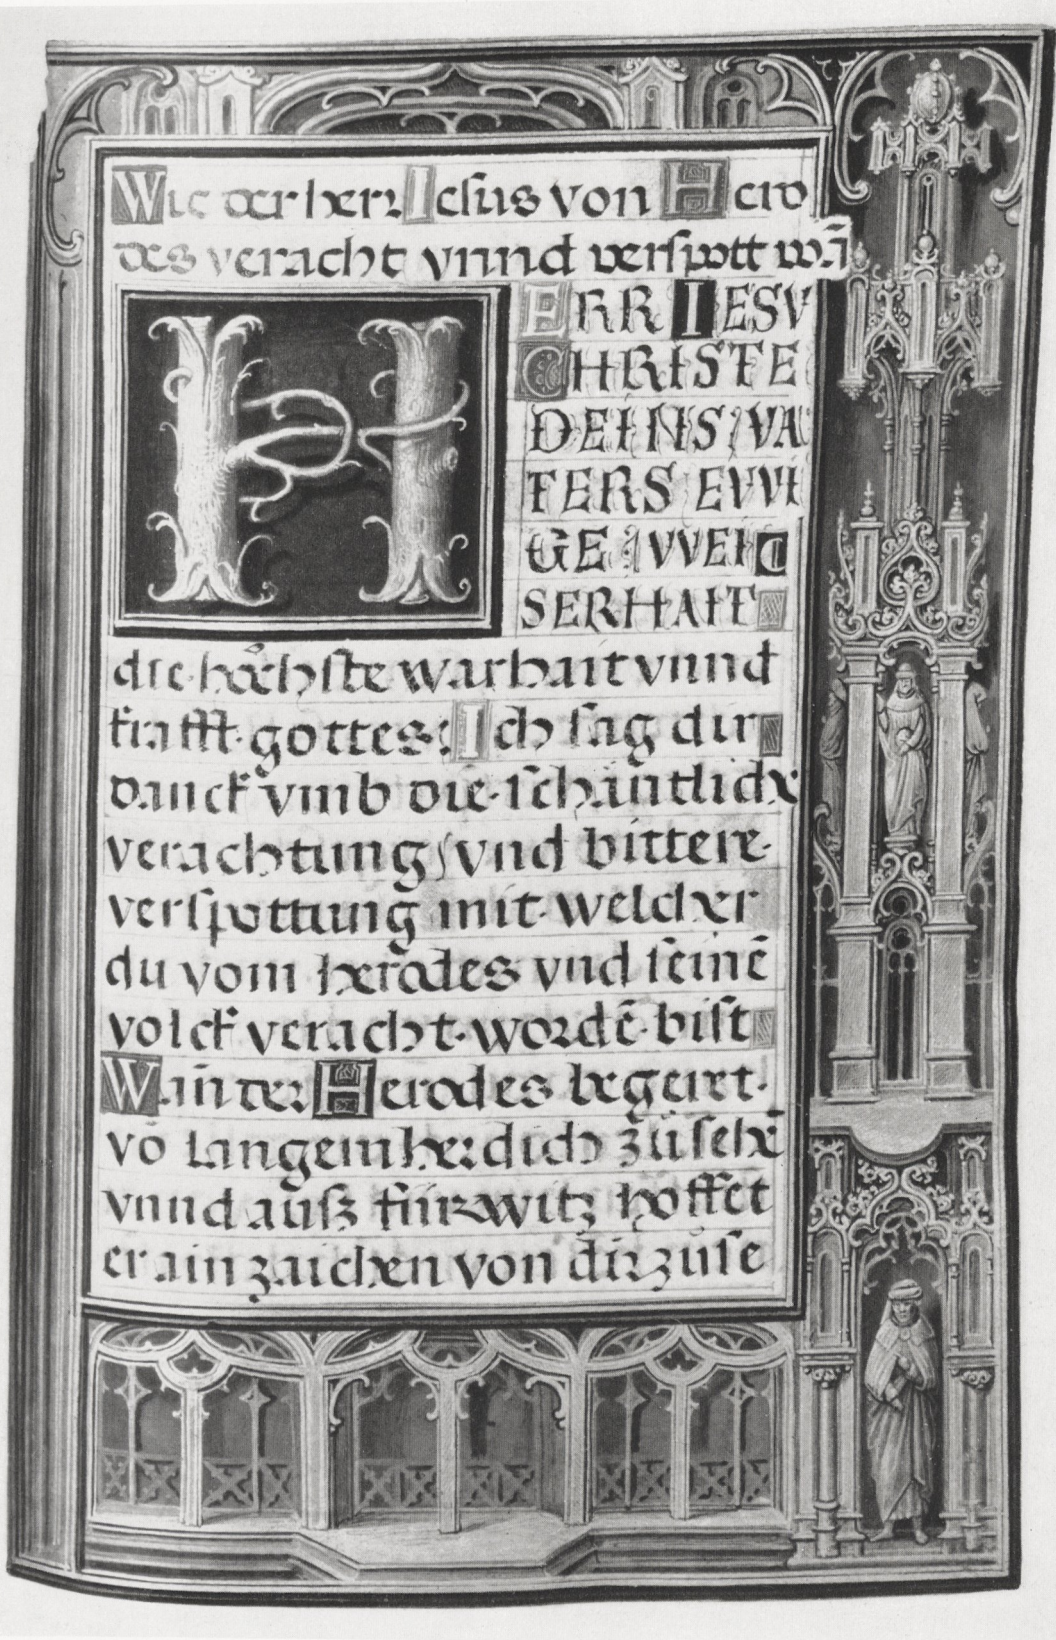 Wie der herr Iesus von Hero
des veracht vnnd verspott wa͞
HERR IESV
CHRISTE
DEINS VA
TERS EVVI
GE VVEI
SERHAIT
die hôchste warhait vnnd
krafft gottes: Ich sag dir
danck vmb die schäntliche
verachtung/ vnd bittere
verspottung mit welcher
du vom herodes vnd seinē
volck veracht wordē bist
Wan̄ der Herodes begeret
vō langem her dich zůsehē
vnnd auß fürwitz hoffet
er ain zaichen von dir zůse